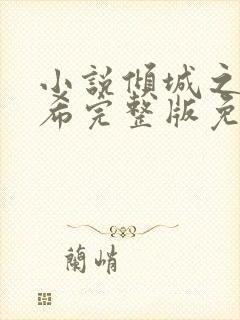 小説傾城之
希完整版免
蘭峭